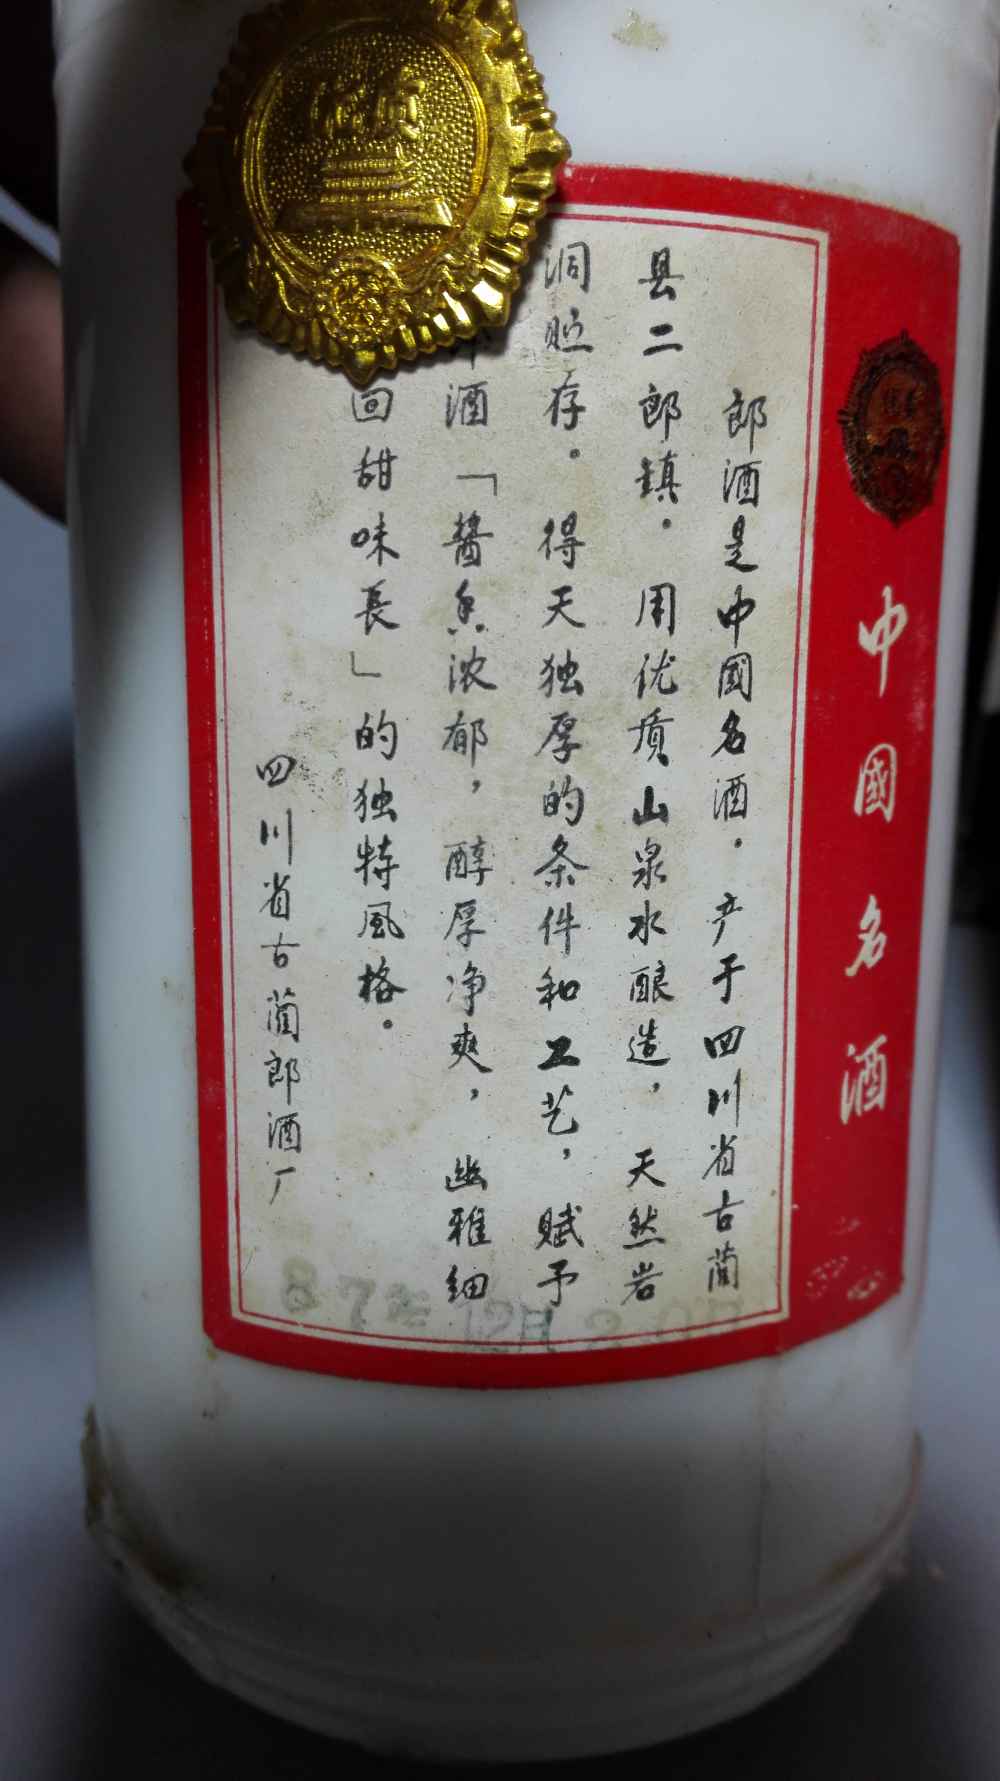 中國名酒
郎酒是中國名酒．产于四川省古蔺
县二郎鎮．用优质山泉水酿造，天然岩
洞贮存。得天独厚的条件和工艺，赋予
酒「醬香浓郁，醇厚净爽，幽雅细
回甜味長」的独特風格。
四川省古蔺郎酒厂
87年12月20日
优质